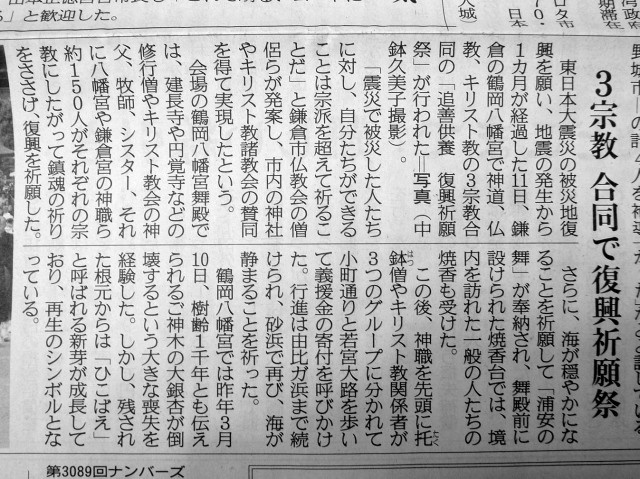 3宗教 合同で復興祈願祭
東日本大震災の被災地復
興を願い、地震の発生から
1カ月が経過した11日、鎌
倉の鶴岡八幡宮で神道、仏
教、キリスト教の3宗教合
同の「追善供養 復興祈願
祭」が行われた=写真(中
鉢久美子撮影)。
「震災で被災した人たち
に対し、自分たちができる
ことは宗派を超えて祈るこ
とだ」と鎌倉市仏教会の僧
侶らが発案し、市内の神社
やキリスト教諸教会の賛同
を得て実現したという。
会場の鶴岡八幡宮舞殿で
は、建長寺や円覚寺などの
修行僧やキリスト教会の神
父、牧師、シスター、それ
に八幡宮や鎌倉宮の神職ら
約150人がそれぞれの宗
教にしたがって鎮魂の祈り
をささげ、復興を祈願した。
さらに、海が穏やかにな
ることを祈願して「浦安の
舞」が奉納され、舞殿前に
設けられた焼香台では、境
内を訪れた一般の人たちの
焼香も受けた。
この後、神職を先頭に托
鉢僧やキリスト教関係者が
3つのグループに分かれて
小町通りと若宮大路を歩い
て義援金の寄付を呼びかけ
た。行進は由比ガ浜まで続
けられ、砂浜で再び、海が
静まることを祈った。
鶴岡八幡宮では昨年3月
10日、樹齢1千年とも伝え
られるご神木の大銀杏が倒
壊するという大きな喪失を
経験した。しかし、残され
た根元からは「ひこばえ」
と呼ばれる新芽が成長して
おり、再生のシンボルとな
っている。
第3089回ナンバーズ